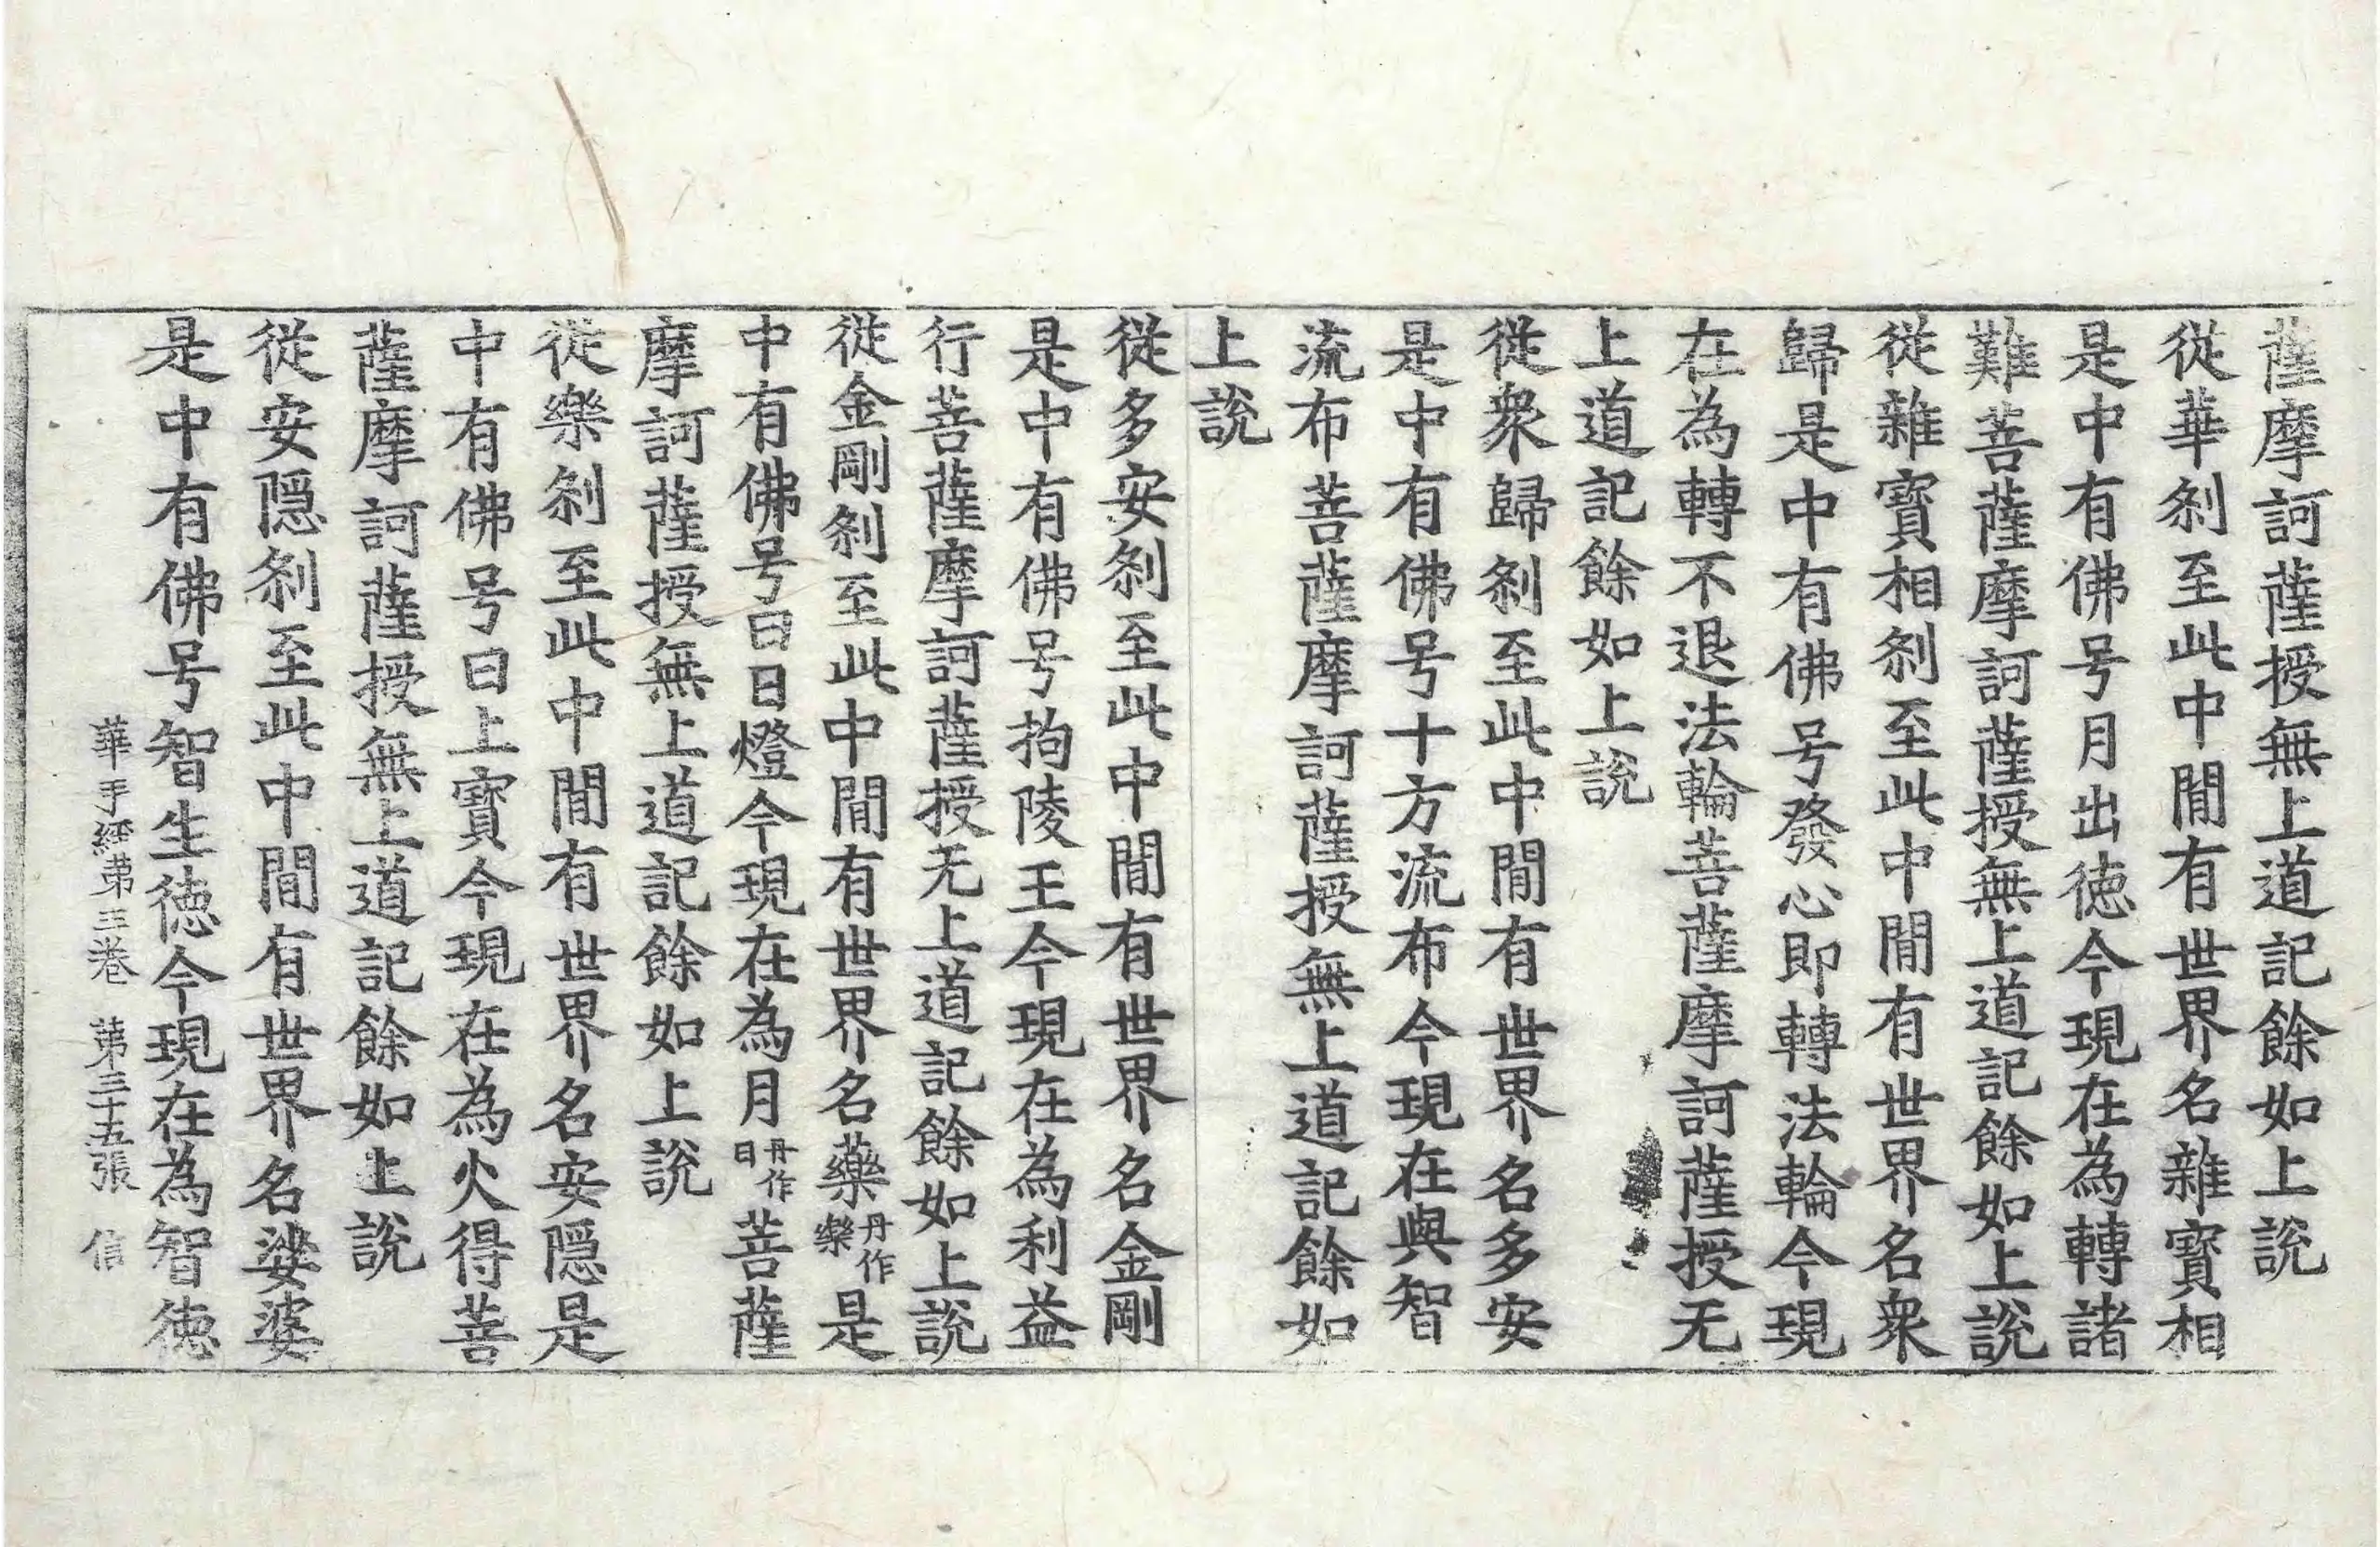 薩摩訶薩授無上道記餘如上說
從華刹至此中閒有世界名雜寶相
是中有佛号月出徳今現在為轉諸
難菩薩摩訶薩授無上道記餘如上說
從雜寶相刹至此中閒有世界名衆
歸是中有佛号發心即轉法輪今現
在為轉不退法輪菩薩摩訶薩授无
上道記餘如上說
從衆歸刹至此中閒有世界名多安
是中有佛号十方流布今現在與智
流布菩薩摩訶薩授無上道記餘如
上說
從多安刹至此中閒有世界名金剛
是中有佛号拘陵王今現在為利益
行菩薩摩訶薩授无上道記餘如上說
從金剛刹至此中閒有世界名藥丹作樂是
中有佛号曰日燈今現在為月丹作日菩薩
摩訶薩授無上道記餘如上說
從樂刹至此中閒有世界名安隱是
中有佛号曰上寶今現在為火得菩
薩摩訶薩授無上道記餘如上說
從安隱刹至此中閒有世界名娑婆
是中有佛号智生徳今現在為智徳
華手經第三卷 第三十五張 信